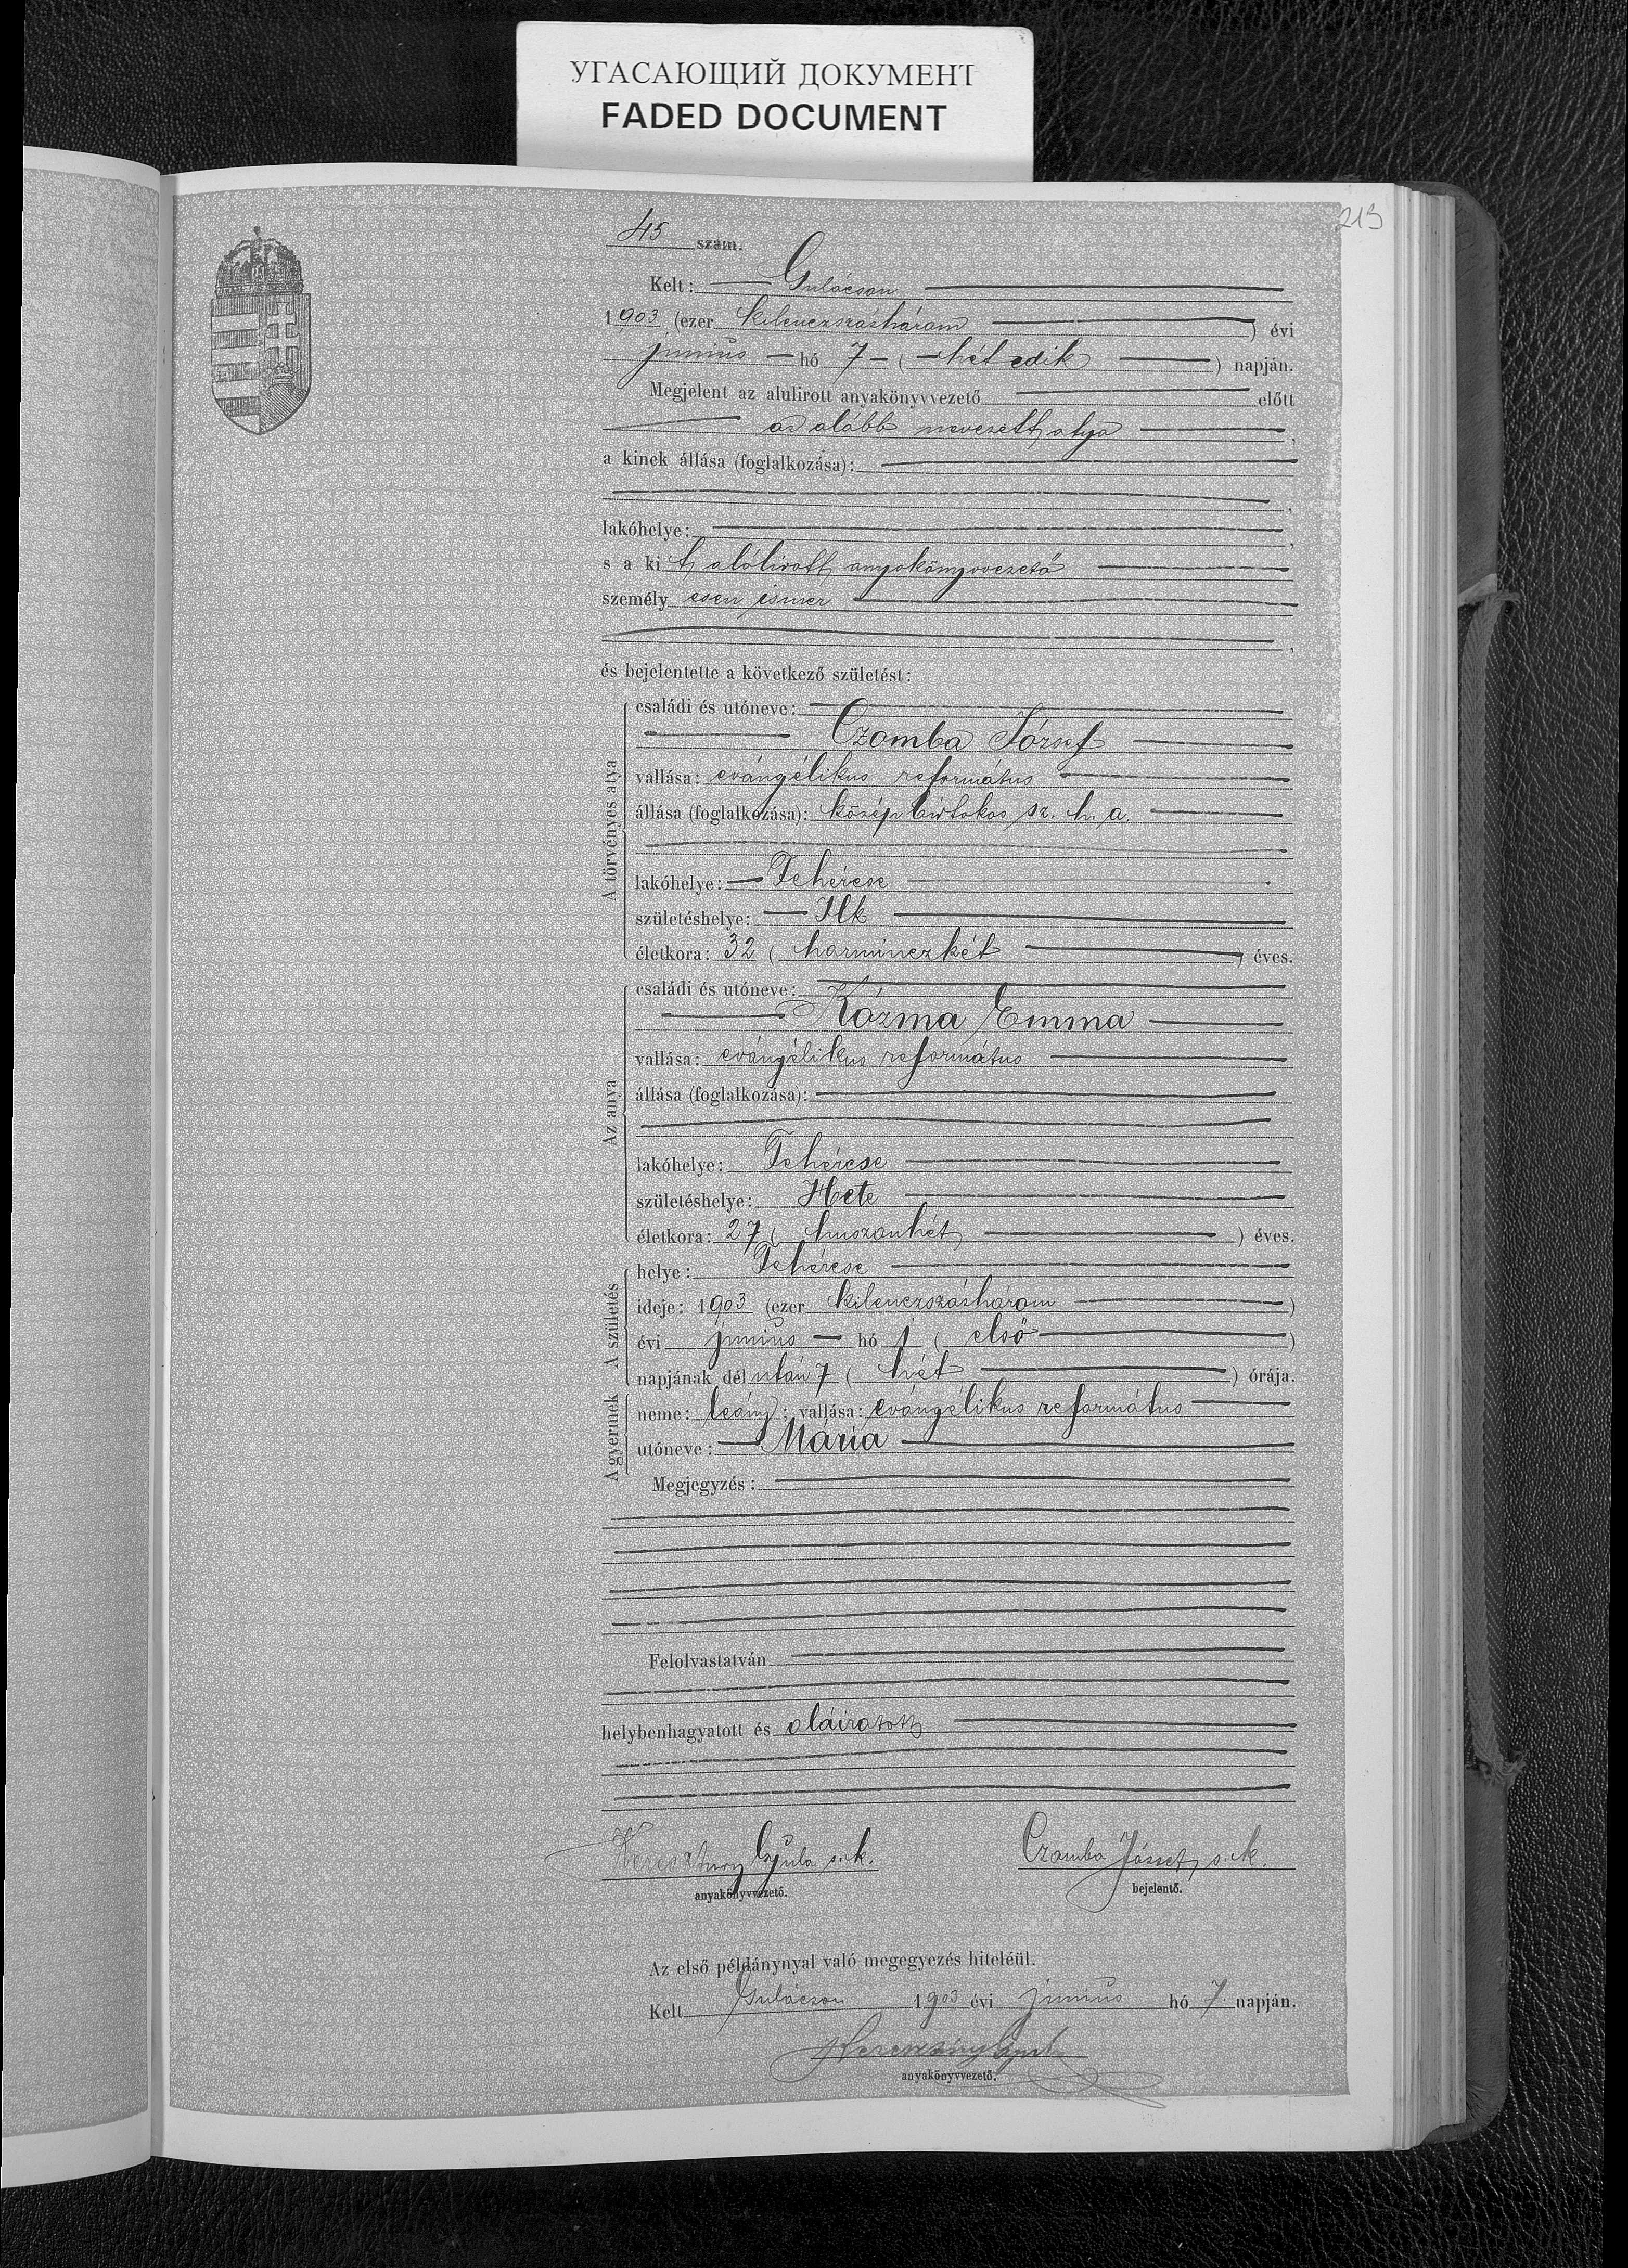 УГАСАЮЩИЙ ДОКУМЕНТ
FADED DOCUMENT
213
45 szám.
Kelt: Gulácson
1903 (ezer kilenczszázhárom) évi
junius hó 7 (hetedik) napján.
Megjelent az alulirott anyakönyvvezető előtt
az alább nevezett atya,
a kinek állása (foglalkozása):
lakóhelye:
s a kit alólirott anyakönyvvezető
személyesen ismer
és bejelentette a következő születést:
A törvényes atya
családi és utóneve:
Czomba József
vallása: evángélikus református
állása (foglalkozása): közép birtokos sz. h. a.
lakóhelye: Fehércse
születéshelye: Ilk
életkora: 32 (harminczkét) éves.
Az anya
családi és utóneve:
Kózma Emma
vallása: evángélikus református
állása (foglalkozása):
lakóhelye: Fehércse
születéshelye: Hete
életkora: 27 (huszonhét) éves.
A születés
helye: Fehércse
ideje: 1903 (ezer kilenczszázhárom)
évi junius hó 1 (első)
napjának délután 7 (hét) órája.
A gyermek
neme: leány; vallása: evángélikus református
utóneve: Mária
Megjegyzés:
Felolvastatván
helybenhagyatott és aláiratott
Gyula s.k. Czomba József s.k.
anyakönyvvezető. bejelentő.
Az első példánynyal való megegyezés hiteléül.
Kelt Gulácson 1903 évi junius hó 7 napján.
Gyula
anyakönyvvezető.